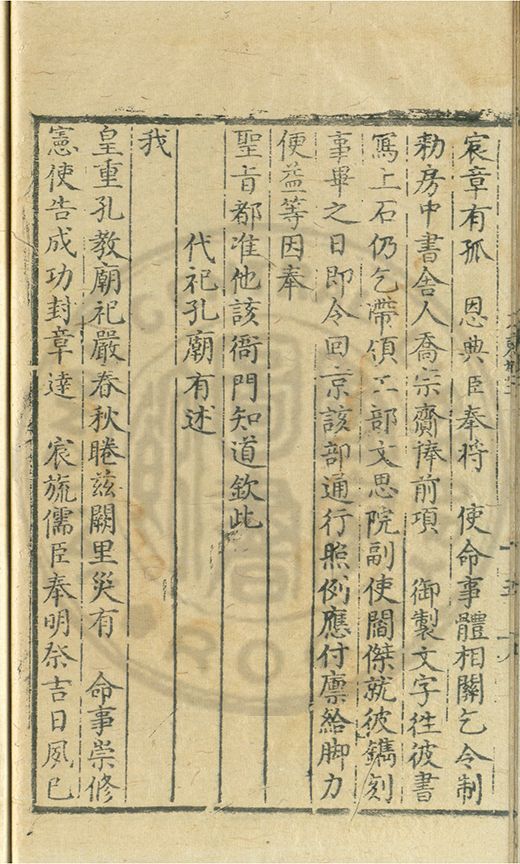 宸章有孤　恩典臣奉将　使命事體相關乞令制
勑房中書舍人喬宗齎捧前項　御製文字徃彼書
寫上石仍乞帶領工部文思院副使閻傑就彼鐫刻
事畢之日即令回京該部通行照例應付廪給脚力
便益等因奉
聖旨都准他該衙門知道欽此
代祀孔廟有述
我
皇重孔教廟祀嚴春秋睠兹闕里災有　命事崇修
憲使告成功封章達　宸旒儒臣奉明祭吉日夙巳